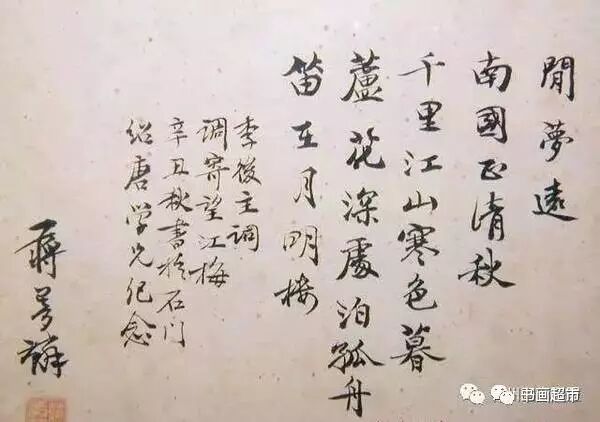 閒夢遠
南國正清秋
千里江山寒色暮
蘆花深處泊孤舟
笛在月明樓
李後主調
调寄望江梅
辛丑秋書於石门
绍唐学兄纪念
蒋
州书画超市